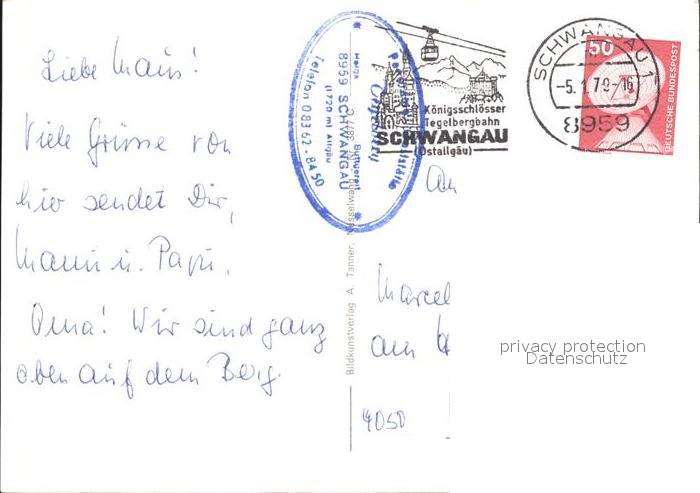 Liebe Maus!
Viele Grüsse von
hier sendet Dir,
Mami u. Papi,
Oma! Wir sind ganz
oben auf dem Berg.
8959 SCHWANGAU
(1720 m) Allgäu
Telefon 08362-8450
Bildkunstverlag A. Tanner, Nesselwang
Königsschlösser
Tegelbergbahn
SCHWANGAU
(Ostallgäu)
SCHWANGAU 1
-5.1.79-16
8959
50
DEUTSCHE BUNDESPOST
An
Marcel
am
4050
privacy protection
Datenschutz